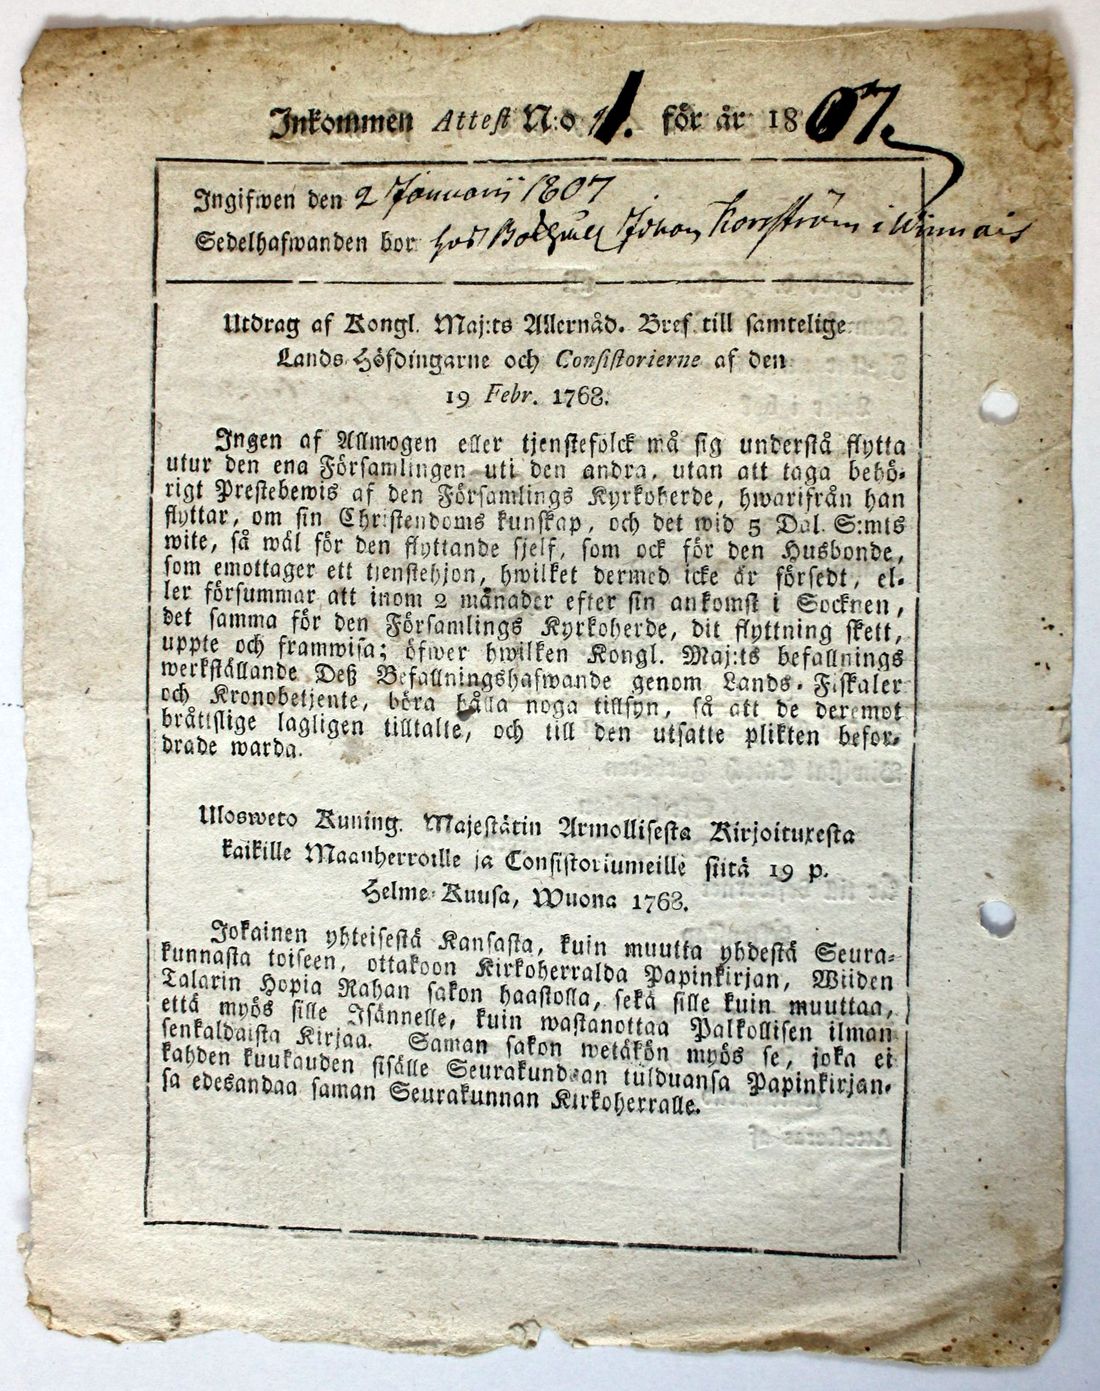 Inkommen Attest N:o 1. för år 1807.
Ingifwen den 2 Januarii 1807
Sedelhafwanden bor hos Johan i
Utdrag af Kongl. Maj:ts Allernåd. Bref till samtelige
Lands-Höfdingarne och Consistorierne af den
19 Febr. 1768.
Ingen af Allmogen eller tjenstefolck må sig understå flytta
utur den ena Församlingen uti den andra, utan att taga behö-
rigt Prestebewis af den Församlings Kyrkoherde, hwarifrån han
flyttar, om sin Christendoms kunskap, och det wid 5 Dal. S:mts
wite, så wäl för den flyttande sjelf, som ock för den Husbonde,
som emottager ett tjenstehjon, hwilket dermed icke är försedt, el-
ler försummar att inom 2 månader efter sin ankomst i Socknen,
det samma för den Församlings Kyrkoherde, dit flyttning skett,
uppte och framwisa; öfwer hwilken Kongl. Maj:ts befallnings
werkställande Deß Befallningshafwande genom Lands-Fiskaler
och Kronobetjente, böra hålla noga tillsyn, så att de deremot
bråttslige lagligen tilltalte, och till den utsatte plikten befor-
drade warda.
Ulosweto Kuning. Majestätin Armollisesta Kirjoituxesta
kaikille Maanherroille ja Consistoriumeille siitä 19 p.
Helme-Kuusa, Wuona 1768.
Jokainen yhteisestä Kansasta, kuin muutta yhdestä Seura-
kunnasta toiseen, ottakoon Kirkoherralda Papinkirjan, Wiiden
Talarin Hopia Rahan sakon haastolla, sekä sille kuin muuttaa,
että myös sille Isännelle, kuin wastanottaa Palkollisen ilman
senkaldaista Kirjaa. Saman sakon wetäkön myös se, joka ei
kahden kuukauden sisälle Seurakundaan tulduansa Papinkirjan-
sa edesandaa saman Seurakunnan Kirkoherralle.